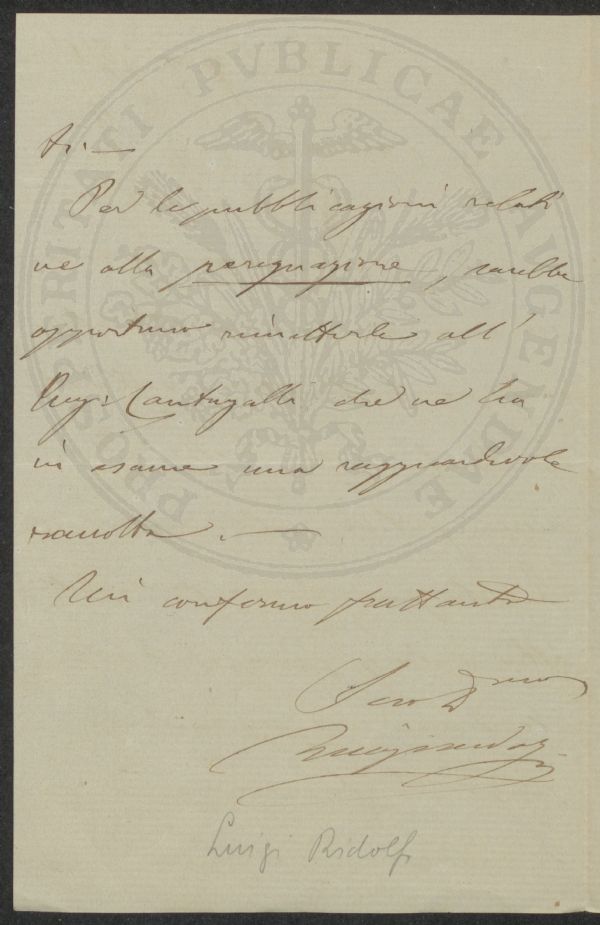 PROSPERITATI PVBLICAE AVGENDAE
ti. —
Per le pubblicazioni relati
ve alla perequazione, sarebbe
opportuno rimetterle all'
Ing. Cantagalli che ne ha
in esame una ragguardevole
raccolta. —
Mi confermo frattanto
Suo D mo
Luigi Ridolfi
Luigi Ridolfi